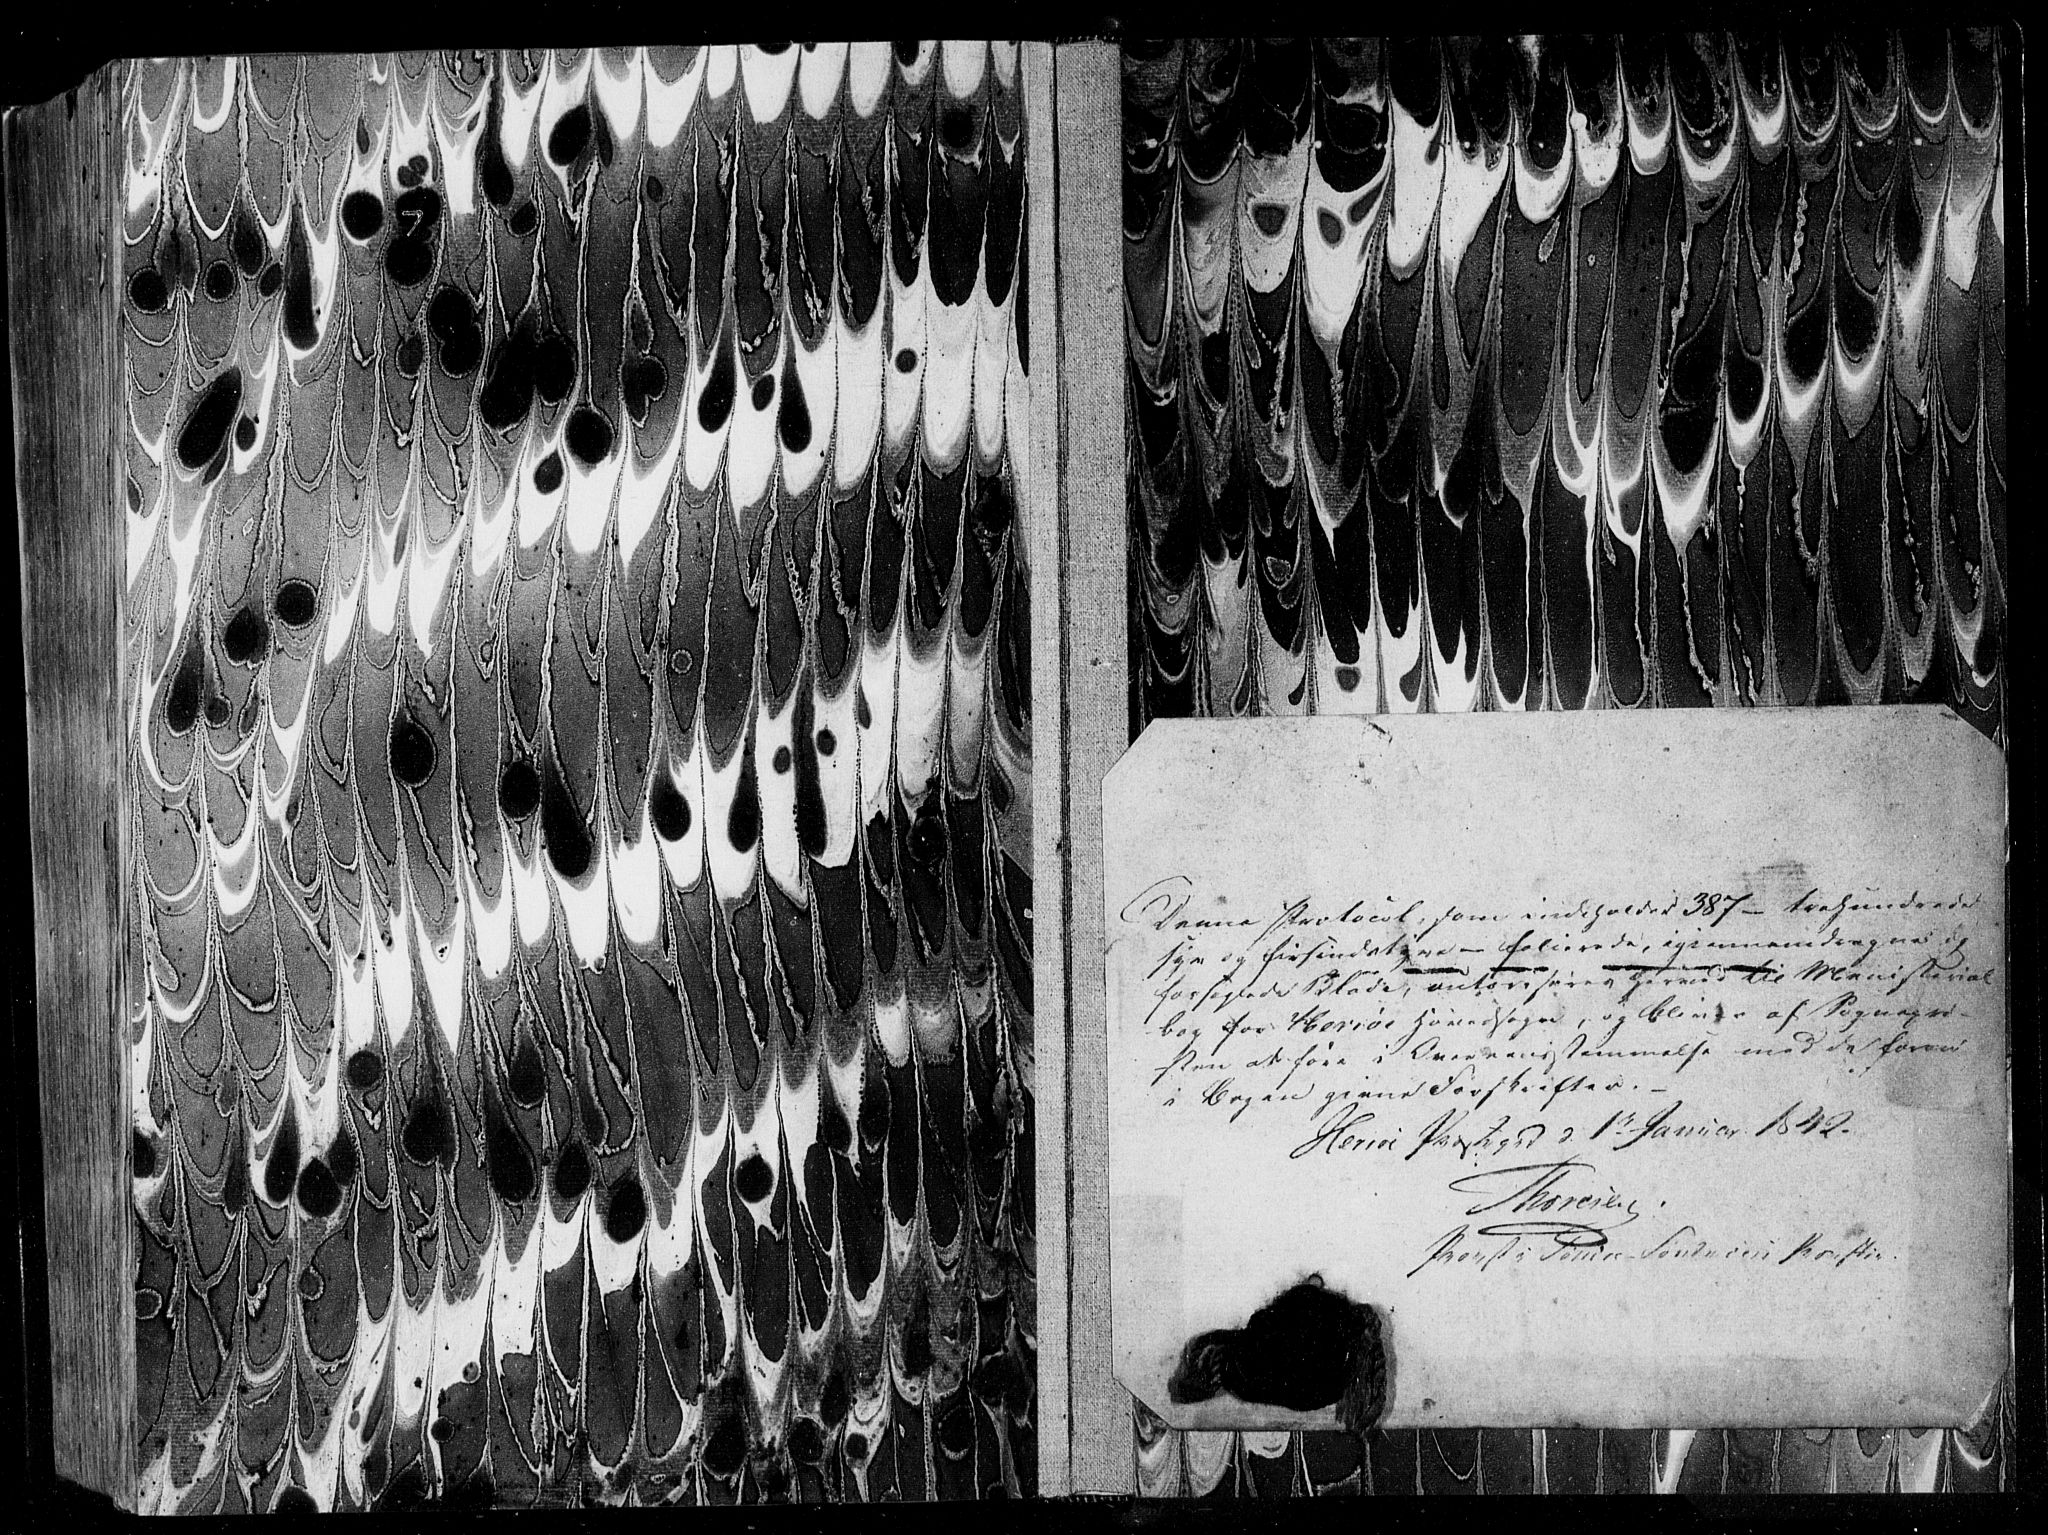 Denne Protocol, som indeholder 387 – trehundrede
syv og firsindstyve – folierede, igiennemdragne og
forseglede Blade, autoriseres herved til Ministerial
bog for Herröe Hovedsogn, og bliver af Sognepræ-
sten at före i Overensstemmelse med de foran
i Bogen givne Forskrifter. –
Heröe Præstgrd d. 1ste Januar 1842.
Thoresen.
Provst i Söndmöre Provstie.